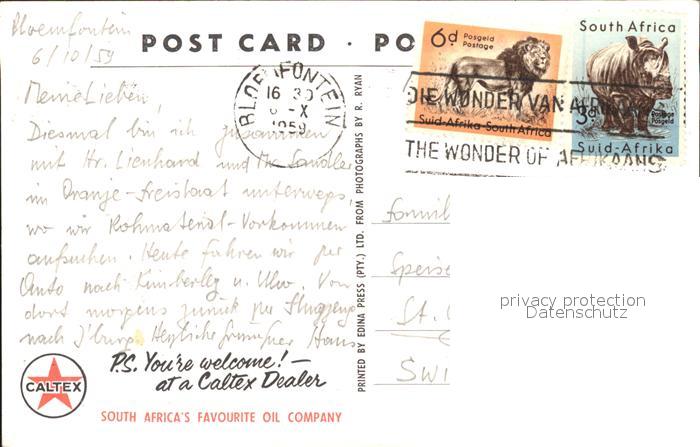 Bloemfontein
6/10/59
POST CARD · PO
6d Posgeld
Postage
Suid-Afrika-South Africa
South Africa
3d Postage
Posgeld
Suid-Afrika
BLOEMFONTEIN
16 30
6-X
1959
DIE WONDER VAN AFRIKAANS
THE WONDER OF AFRIKAANS
Meine Lieben,
Diesmal bin ich zusammen
mit Hr. Lienhard und Mr. Sandler
im Oranje-Freistaat unterwegs,
wo wir Rohmaterial-Vorkommen
aufsuchen. Heute fahren wir per
Auto nach Kimberley u. Von
dort morgens zurück per Flugzeug
nach J'burg. Herzliche Hans
Famil
Speise
St.
SWI
PRINTED BY EDINA PRESS (PTY.) LTD. FROM PHOTOGRAPHS BY R. RYAN
privacy protection
Datenschutz
CALTEX
P.S. You're welcome! —
at a Caltex Dealer
SOUTH AFRICA'S FAVOURITE OIL COMPANY